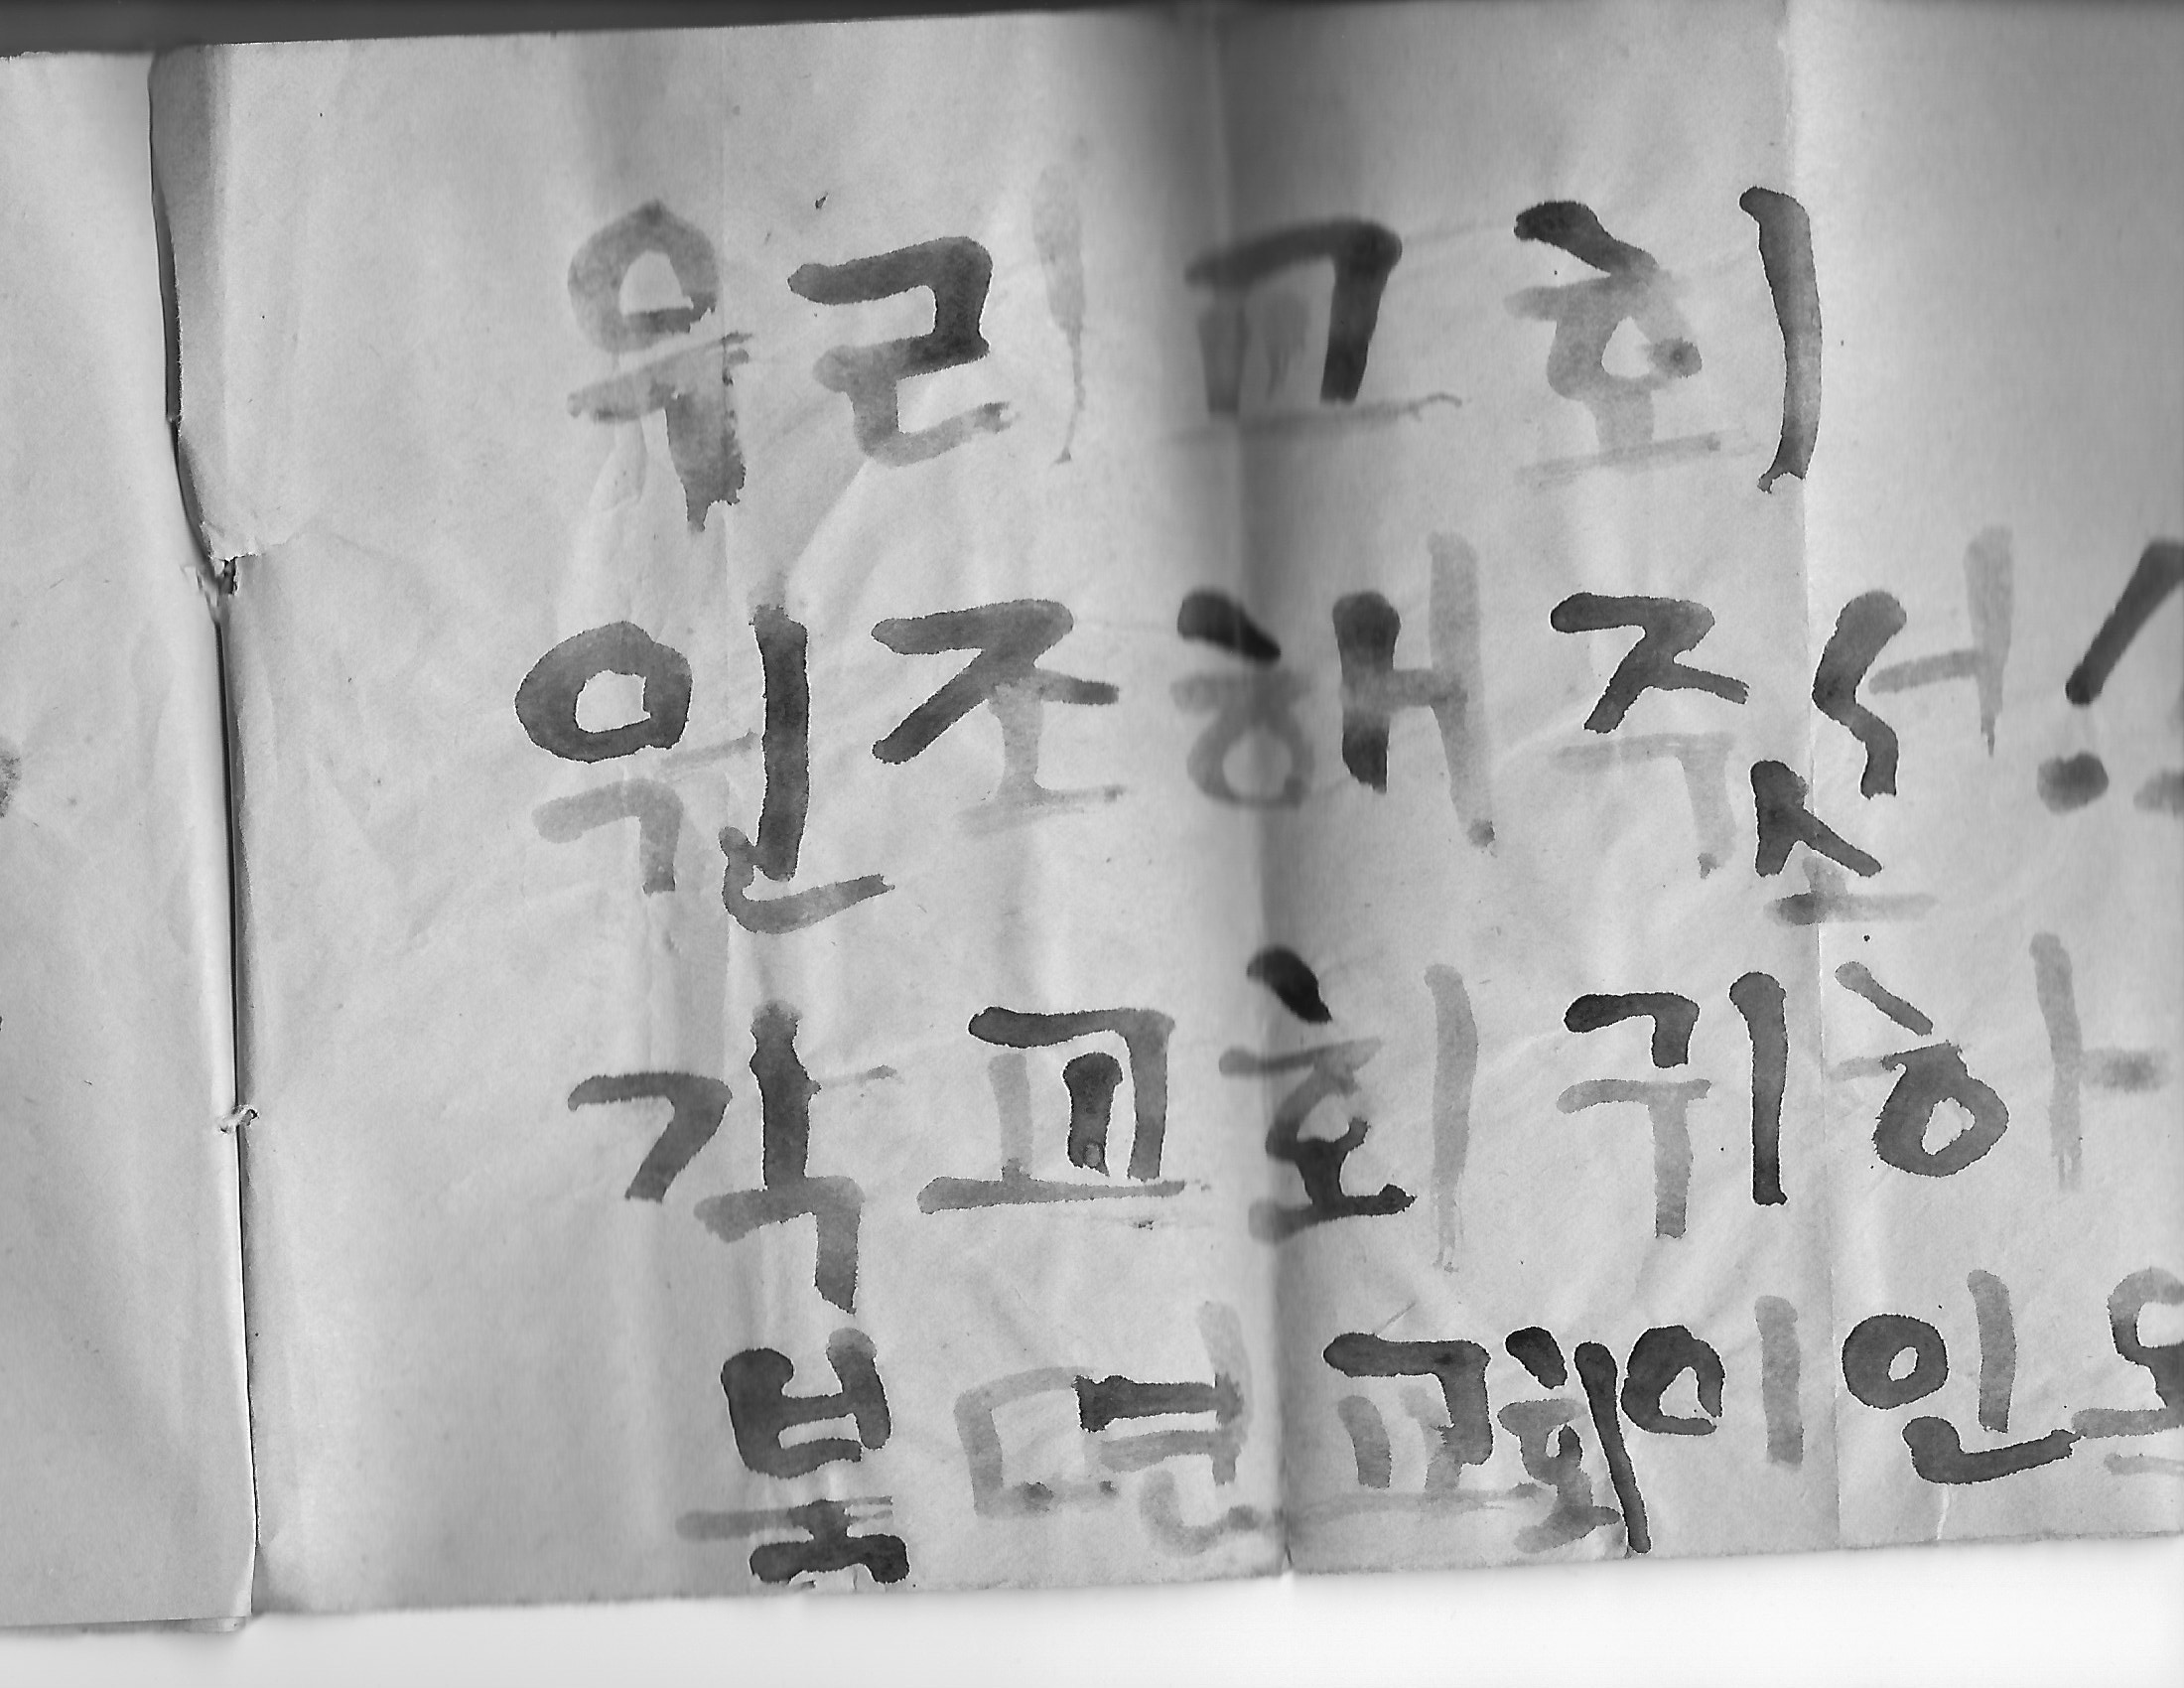 우리 교회
원조해 주소서!
각 교회 귀하
불면 교회이인